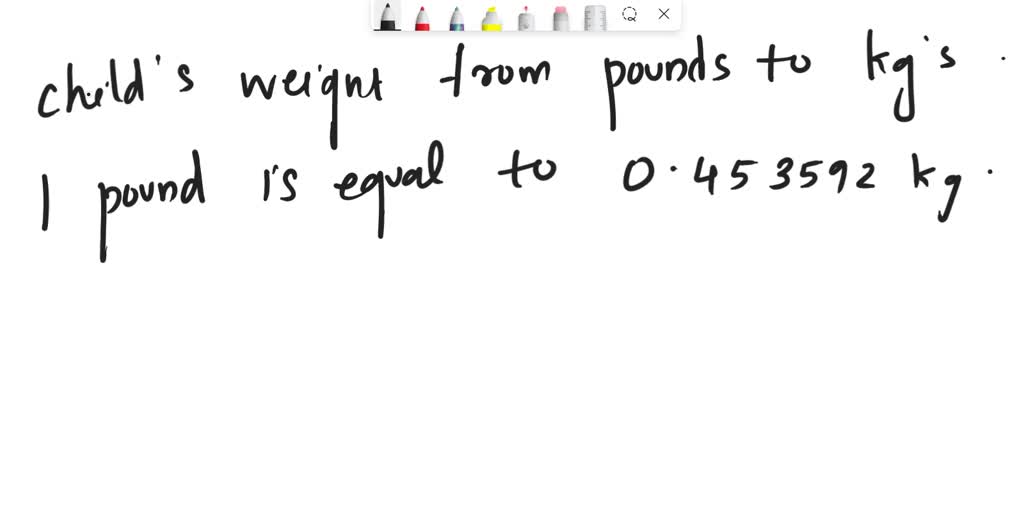 child's weight from pounds to kg's.
1 pound is equal to 0.453592 kg.